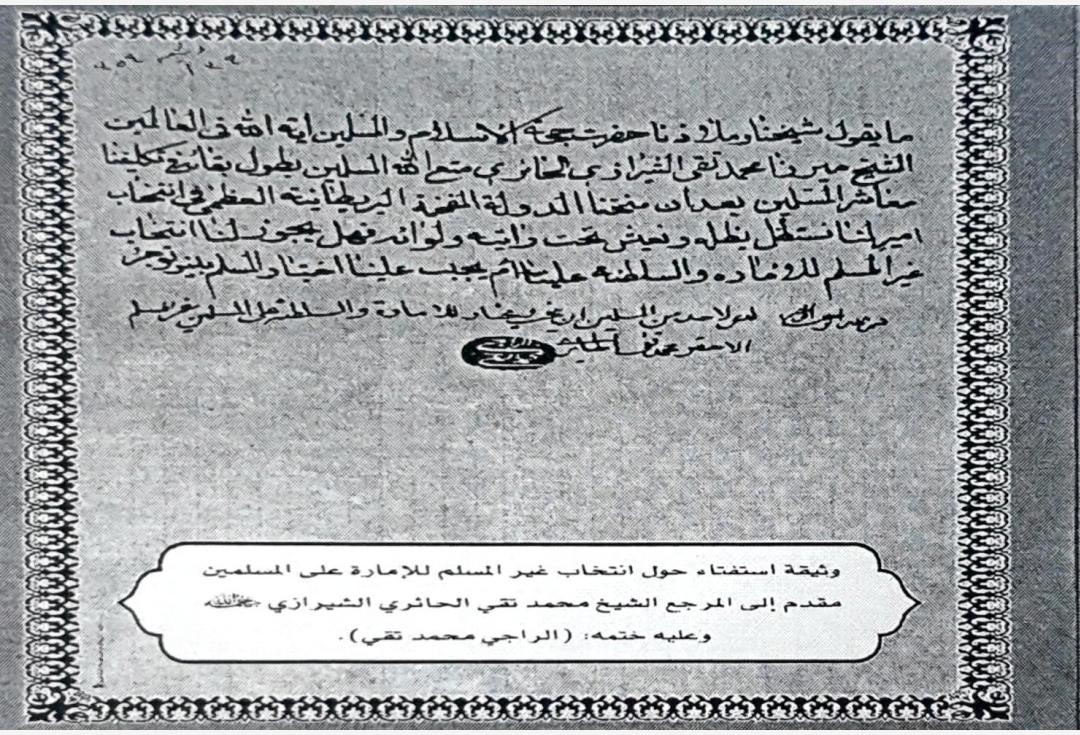 ما يقول شيخنا وملاذنا حضرت حجة الاسلام والمسلمين اية الله في العالمين
الشيخ ميرزا محمد تقي الشيرازي الحائري متع الله المسلمين بطول بقائه في تكليفنا
معاشر المسلمين بعد ان منحتنا الدولة المفخمة البريطانية العظمى في انتخاب
امير لنا نستظل بظله ونعيش تحت رايته ولوائه فهل يجوز لنا انتخاب
غير المسلم للامارة والسلطنة علينا ام يجب علينا اختيار المسلم بينوا توجروا
ليس لاحد من المسلمين ان ينتخب ويختار للامارة والسلطنة على المسلمين غير المسلم
الاحقر محمد تقي الحائري
وثيقة استفتاء حول انتخاب غير المسلم للإمارة على المسلمين
مقدم إلى المرجع الشيخ محمد تقي الحائري الشيرازي رحمه الله
وعليه ختمه: (الراجي محمد تقي).